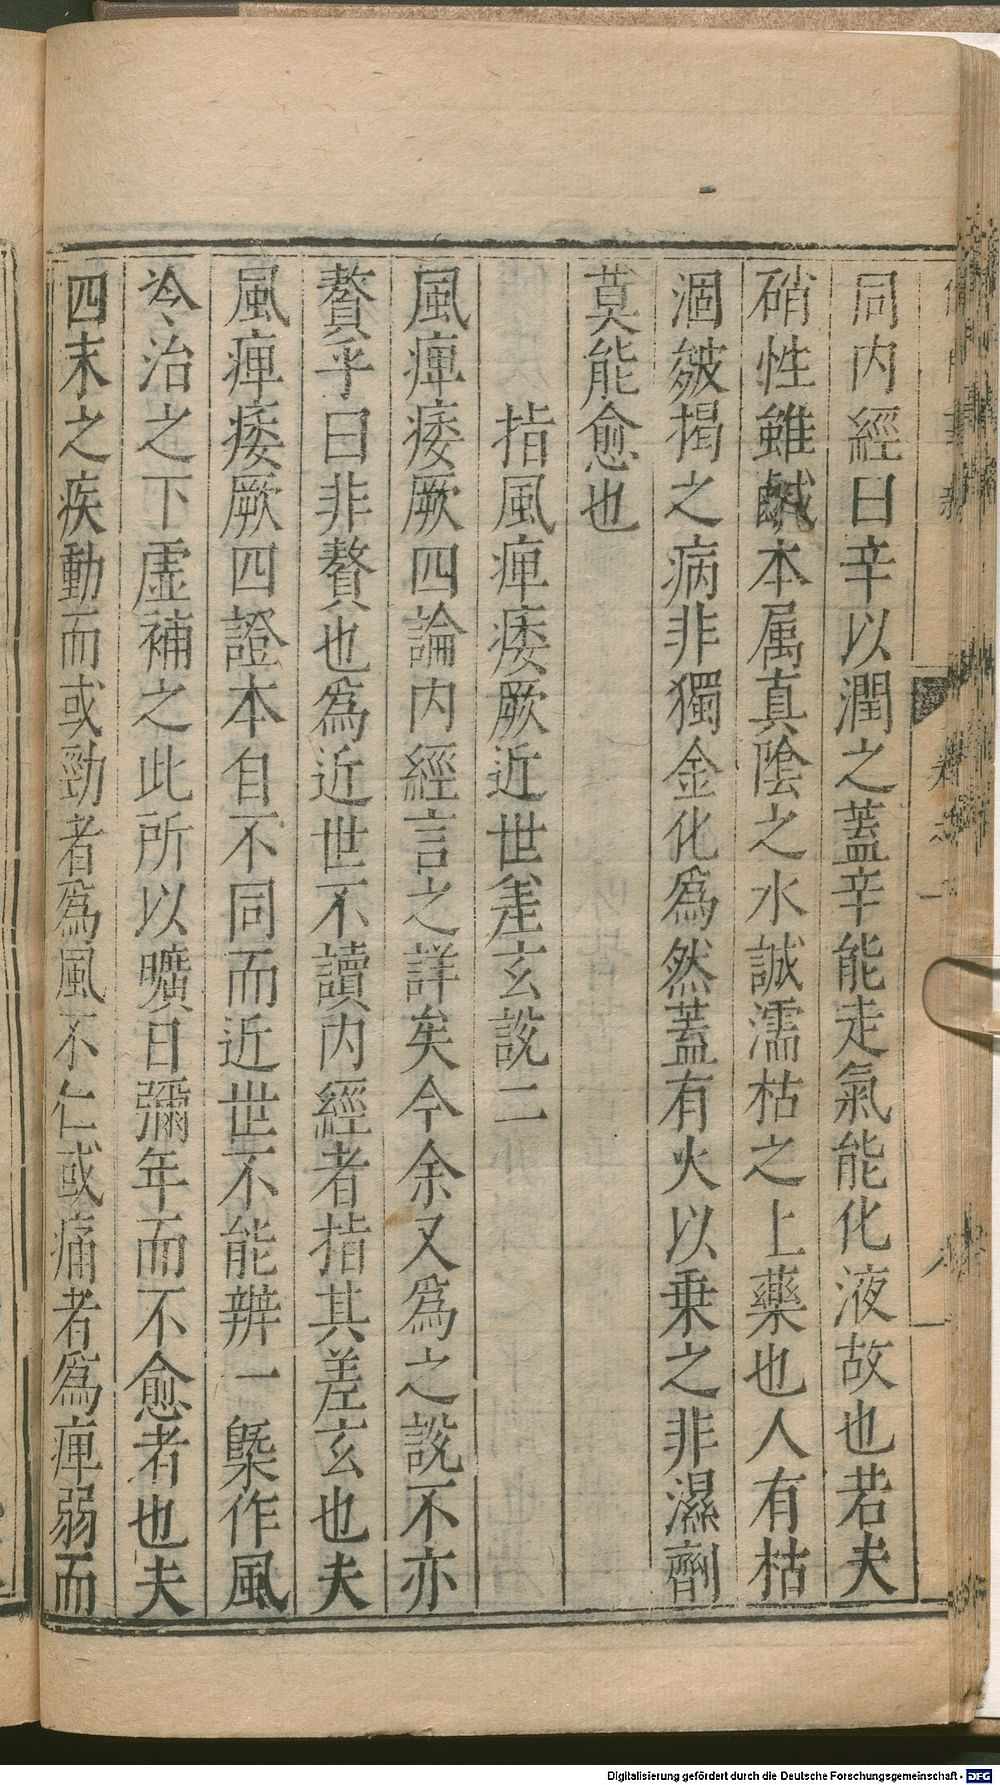 同内經曰辛以潤之蓋辛能走氣能化液故也若夫
硝性雖鹹本属真陰之水誠濡枯之上藥也人有枯
涸皴揭之病非獨金化為然蓋有火以乗之非濕劑
莫能愈也
指風痺痿厥近世差玄説二
風痺痿厥四論内經言之詳矣今余又為之説不亦
贅乎曰非贅也為近世不讀内經者指其差玄也夫
風痺痿厥四證本自不同而近世不能辨一槩作風
冷治之下虚補之此所以曠日彌年而不愈者也夫
四末之疾動而或勁者為風不仁或痛者為痺弱而
Digitalisierung gefördert durch die Deutsche Forschungsgemeinschaft - DFG